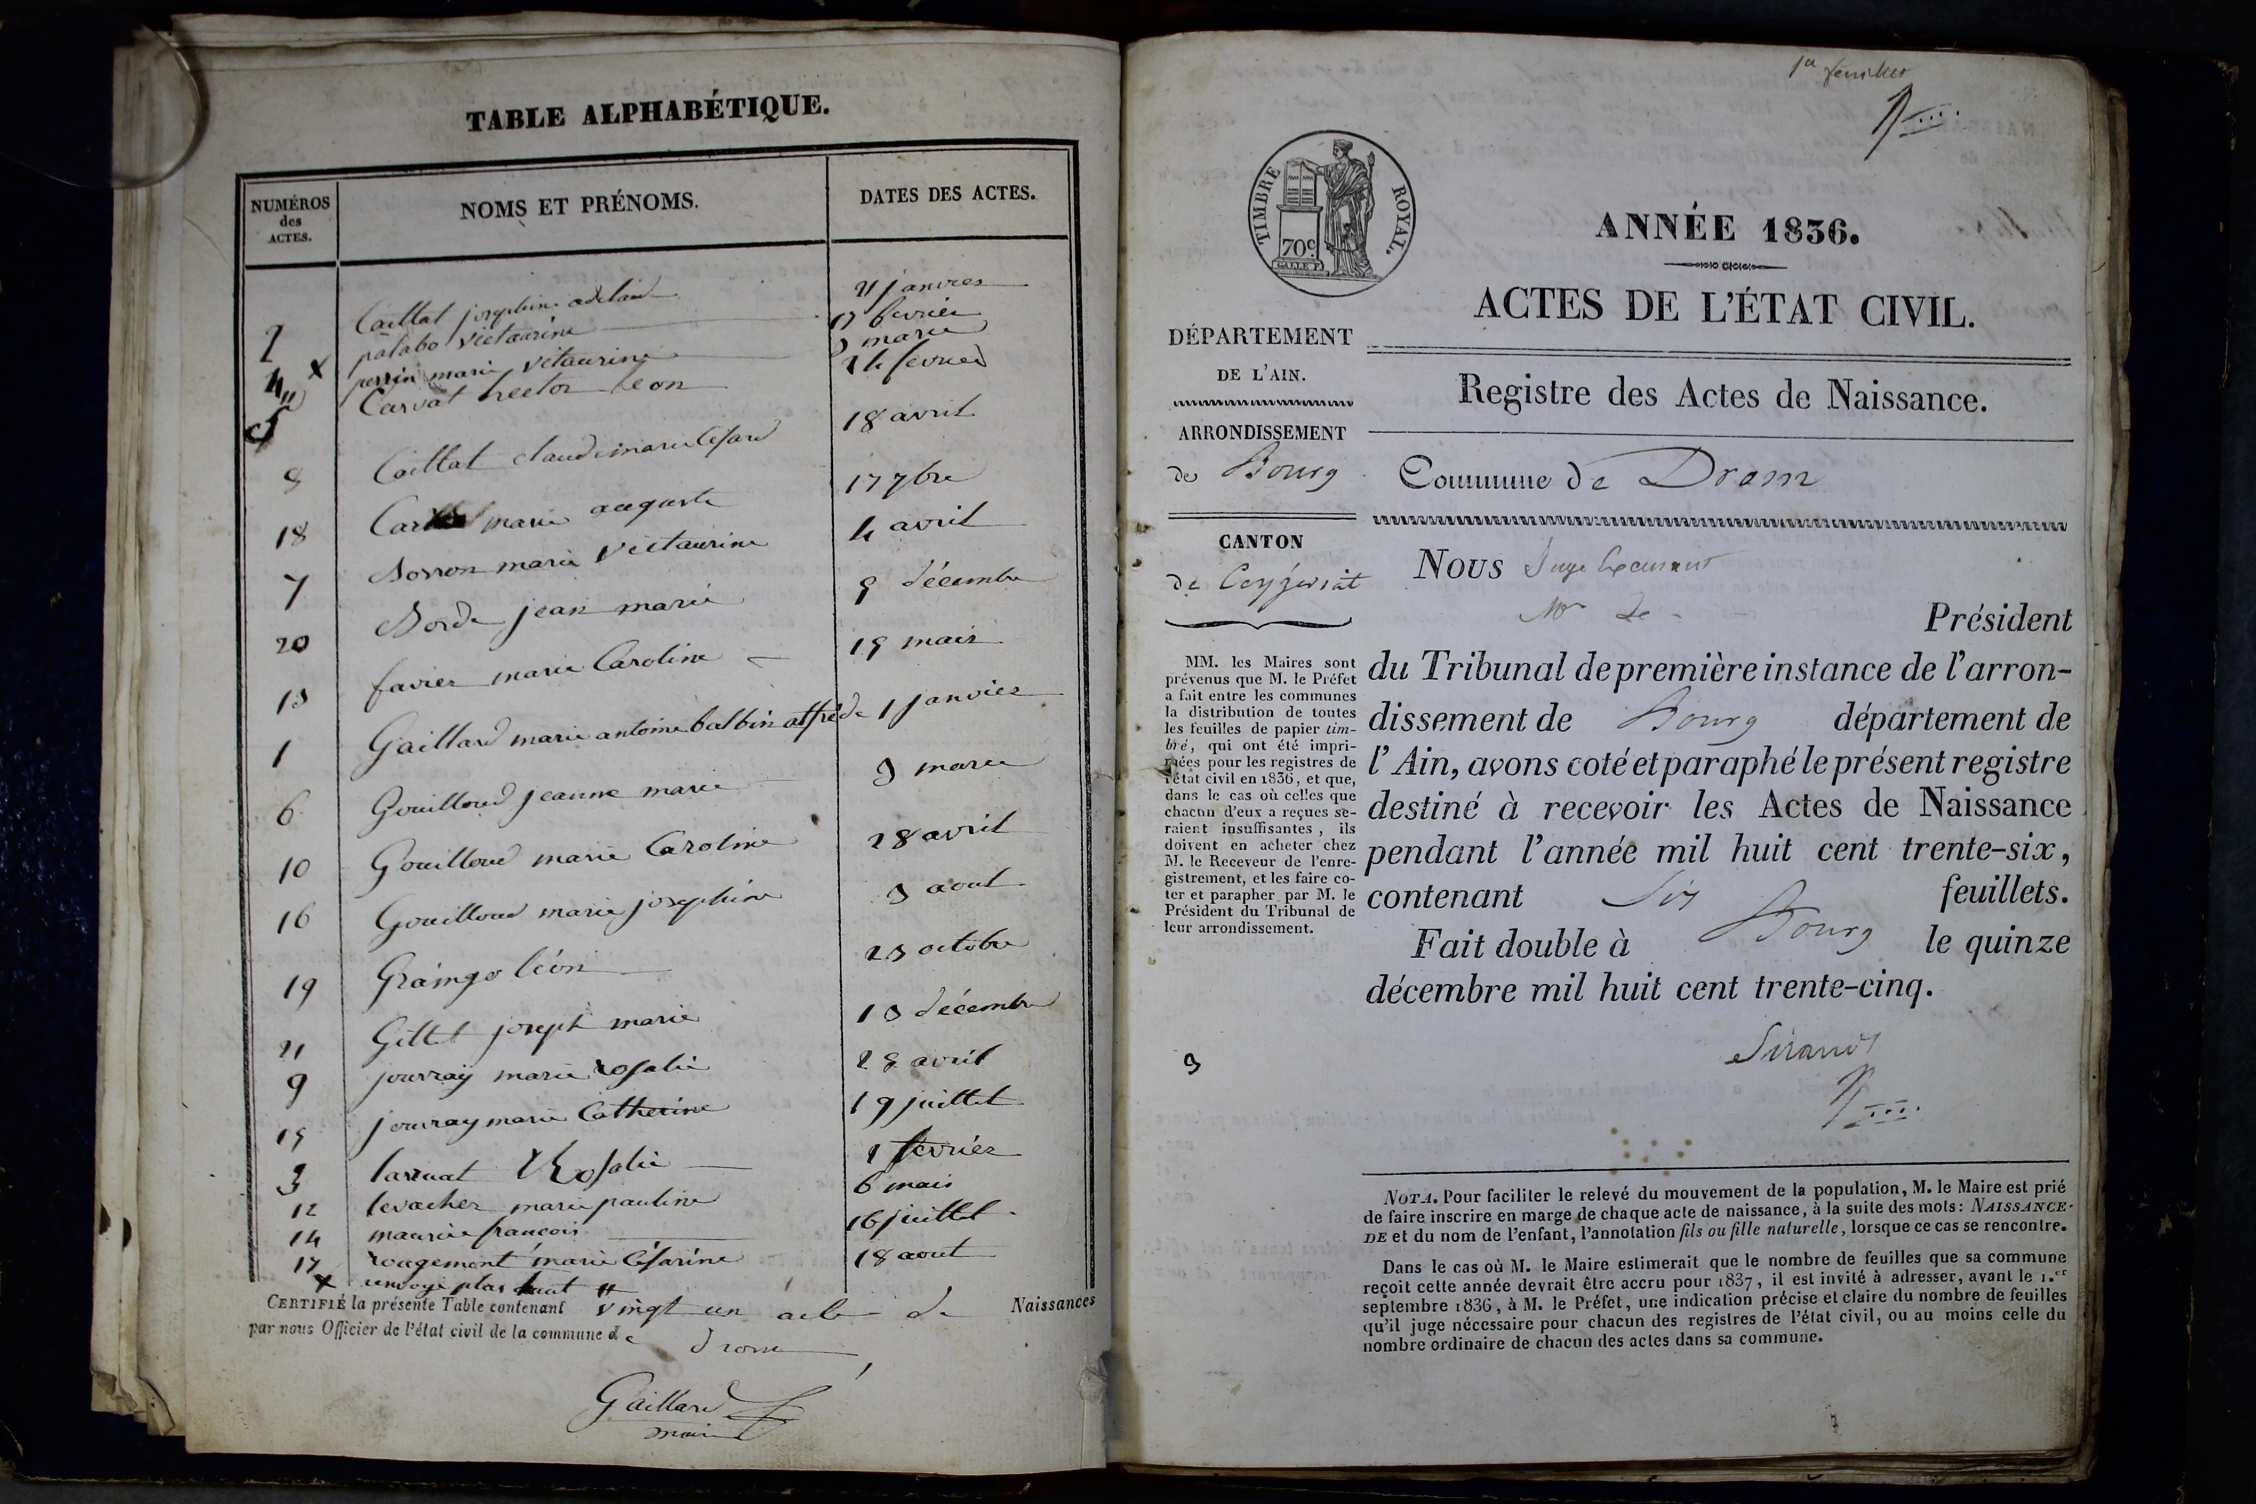 TABLE ALPHABÉTIQUE.
NUMÉROS des ACTES. NOMS ET PRÉNOMS. DATES DES ACTES.
2 Caillat josephine adelaid 21 janvier
palabo victaurine 17 fevrier
4 x perrin marie vitaurine 3 mars
5 Carvat hector leon 24 fevrier
8 Caillat claude marie Césard 18 avril
18 marie auguste 17 7bre
7 Borron marie Victaurine 4 avril
20 Borde jean marie 9 décembre
13 favier marie Caroline 15 mais
1 Gaillard marie antoine balbin alfrede 1 janvier
6 Gouilloud jeanne marie 3 mars
10 Gouilloud marie Caroline 28 avril
16 Gouilloud marie josephine 3 aout
19 léon 23 octobre
21 Gillet joseph marie 13 décembre
9 jouvray marie rosalie 28 avril
15 jouvray marie Catherine 19 juillet
3 larnat Rosalie 1 fevrier
12 levacher marie pauline 6 mais
14 maurice francois 16 juillet
17 rougemont marie Césarine 18 aout
x renvoye plus haut 4
CERTIFIÉ la présente Table contenant vingt un acte de Naissances
par nous Officier de l'état civil de la commune de Drom
Gaillard
maire
1er feuillet
TIMBRE ROYAL.
70c
ANNÉE 1836.
ACTES DE L'ÉTAT CIVIL.
DÉPARTEMENT
DE L'AIN.
ARRONDISSEMENT
de Bourg
CANTON
de Ceyzeriat
MM. les Maires sont
prévenus que M. le Préfet
a fait entre les communes
la distribution de toutes
les feuilles de papier tim-
bré, qui ont été impri-
mées pour les registres de
l'état civil en 1836, et que,
dans le cas où celles que
chacun d'eux a reçues se-
raient insuffisantes, ils
doivent en acheter chez
M. le Receveur de l'enre-
gistrement, et les faire co-
ter et parapher par M. le
Président du Tribunal de
leur arrondissement.
3
Registre des Actes de Naissance.
Commune de Drom
NOUS Juge
Mr Le Président
du Tribunal de première instance de l'arron-
dissement de Bourg département de
l'Ain, avons coté et paraphé le présent registre
destiné à recevoir les Actes de Naissance
pendant l'année mil huit cent trente-six,
contenant Six feuillets.
Fait double à Bourg le quinze
décembre mil huit cent trente-cinq.
NOTA. Pour faciliter le relevé du mouvement de la population, M. le Maire est prié
de faire inscrire en marge de chaque acte de naissance, à la suite des mots: NAISSANCE
DE et du nom de l'enfant, l'annotation fils ou fille naturelle, lorsque ce cas se rencontre.
Dans le cas où M. le Maire estimerait que le nombre de feuilles que sa commune
reçoit cette année devrait être accru pour 1837, il est invité à adresser, avant le 1.er
septembre 1836, à M. le Préfet, une indication précise et claire du nombre de feuilles
qu'il juge nécessaire pour chacun des registres de l'état civil, ou au moins celle du
nombre ordinaire de chacun des actes dans sa commune.